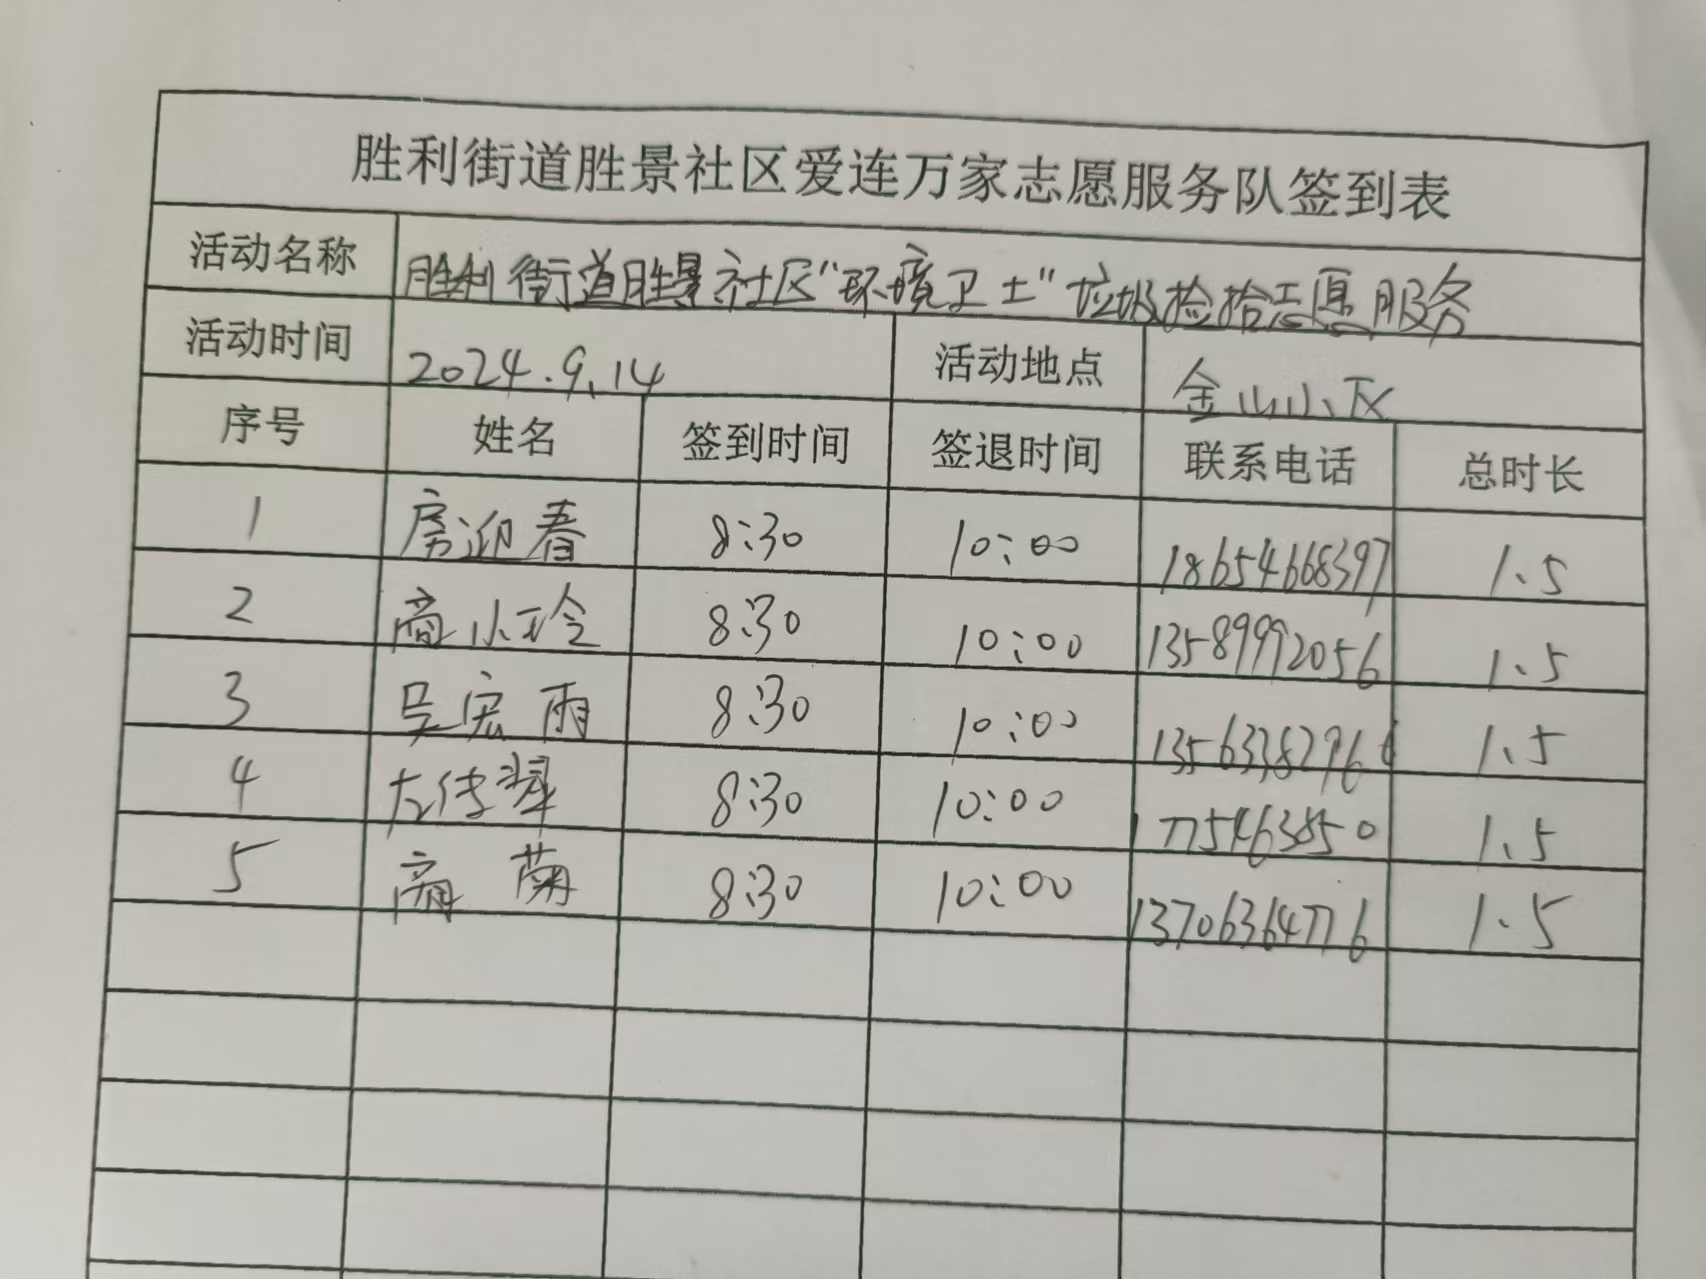 胜利街道胜景社区爱连万家志愿服务队签到表
活动名称 胜利街道胜景社区“环境卫士”垃圾捡拾志愿服务
活动时间 2024.9.14 活动地点 金山小区
序号 姓名 签到时间 签退时间 联系电话 总时长
1 房迎春 8:30 10:00 18654668397 1.5
2 商小玲 8:30 10:00 13589992056 1.5
3 吴宏雨 8:30 10:00 1.5
4 8:30 10:00 1.5
5 菊 8:30 10:00 13706364776 1.5